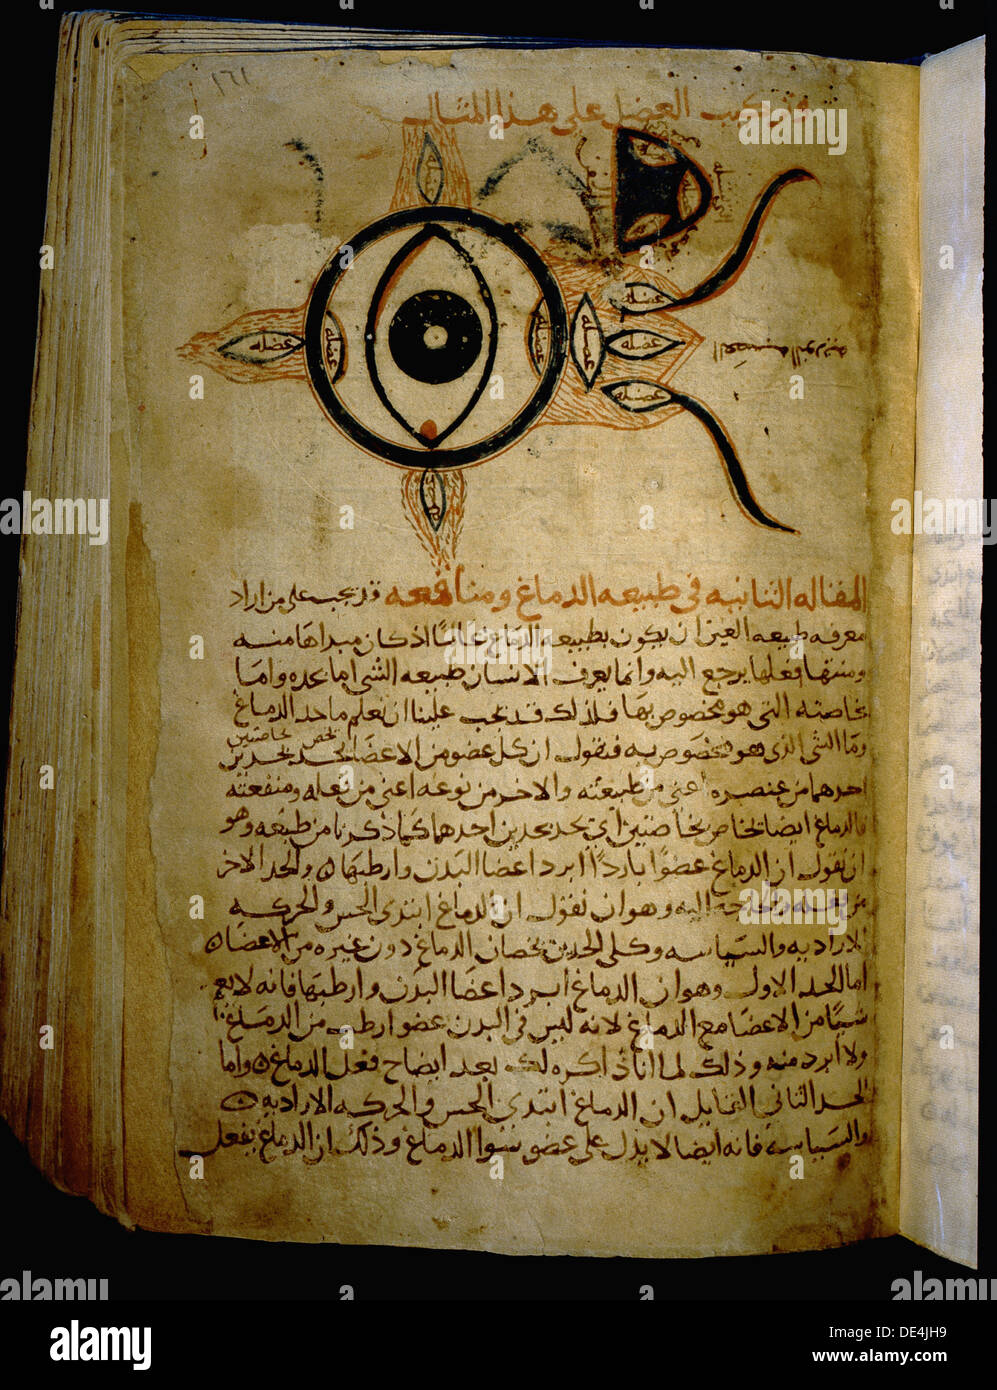 ١٦١
وتركيب العضل على هذا المثال
عضله
عضله
عضله
عضله
عضله
عضله
عضله
المقاله الثانيه في طبيعه الدماغ ومنافعه قد يجب على من اراد
معرفه طبيعه العين ان يكون بطبيعه الدماغ عالمًا اذ كان مبداها منه
ومنتها فعلها يرجع اليه وانما يعرف الانسان طبيعه الشي اما بحده واما
بخاصته التي هو مخصوص بها فلذلك قد يجب علينا ان نعلم ما حد الدماغ
وما الشي الذي هو مخصوص به فنقول ان كل عضو من الاعضا يحد بحدين
يخص بخاصتين
احدهما من عنصره اعني من طبيعته والاخر من نوعه اعني من فعله ومنفعته
فالدماغ ايضا يخاص بخاصتين اي يحد بحدين احدهما كما ذكرنا من طبعه وهو
ان نقول ان الدماغ عضوًا باردًا ابرد اعضا البدن وارطبها والحد الاخر
من فعله والحاجة اليه وهو ان نقول ان الدماغ ابتدى الحس والحركه
الاراديه والسياسه وكلى الحدين يخصان الدماغ دون غيره من الاعضا
اما الحد الاول وهو ان الدماغ ابرد اعضا البدن وارطبها فانه لا يعم
شيًا من الاعضا مع الدماغ لانه ليس في البدن عضو ارطب من الدماغ
ولا ابرد منه وذلك لما انا ذاكره لك بعد ايضاح فعل الدماغ واما
الحد الثاني القايل ان الدماغ ابتدى الحس والحركه الاراديه
والسياسه فانه ايضا لا يدل على عضو سوا الدماغ وذلك ان الدماغ يفعل
alamy
DE4JH9
www.alamy.com